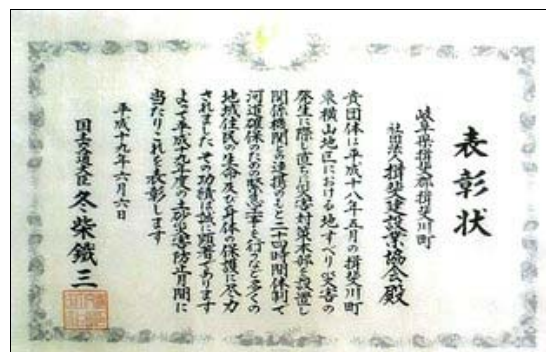 表彰状
岐阜県揖斐郡揖斐川町
社団法人揖斐建設業協会殿
貴団体は平成十八年五月の揖斐川町
東横山地区における地すべり災害の
発生に際し直ちに災害対策本部を設置し
関係機関との連携のもと二十四時間体制で
河道確保のための緊急工事を行うなど多くの
地域住民の生命及び身体の保護に尽力
されましたその功績は誠に顕著であります
よって平成十九年度の土砂災害防止月間に
当たりこれを表彰します
平成十九年六月六日
国土交通大臣冬柴鐵三